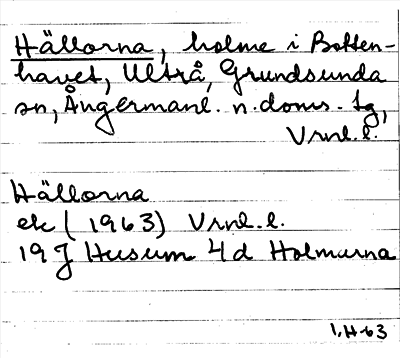 Hällorna, holme i Botten-
havet, Ultrå, Grundsunda
sn, Ångermanl. n. doms. tg,
Vrnl. l.
Hällorna
ek (1963) Vrnl. l.
19 J Husum 4 d Holmarna
1, H-63